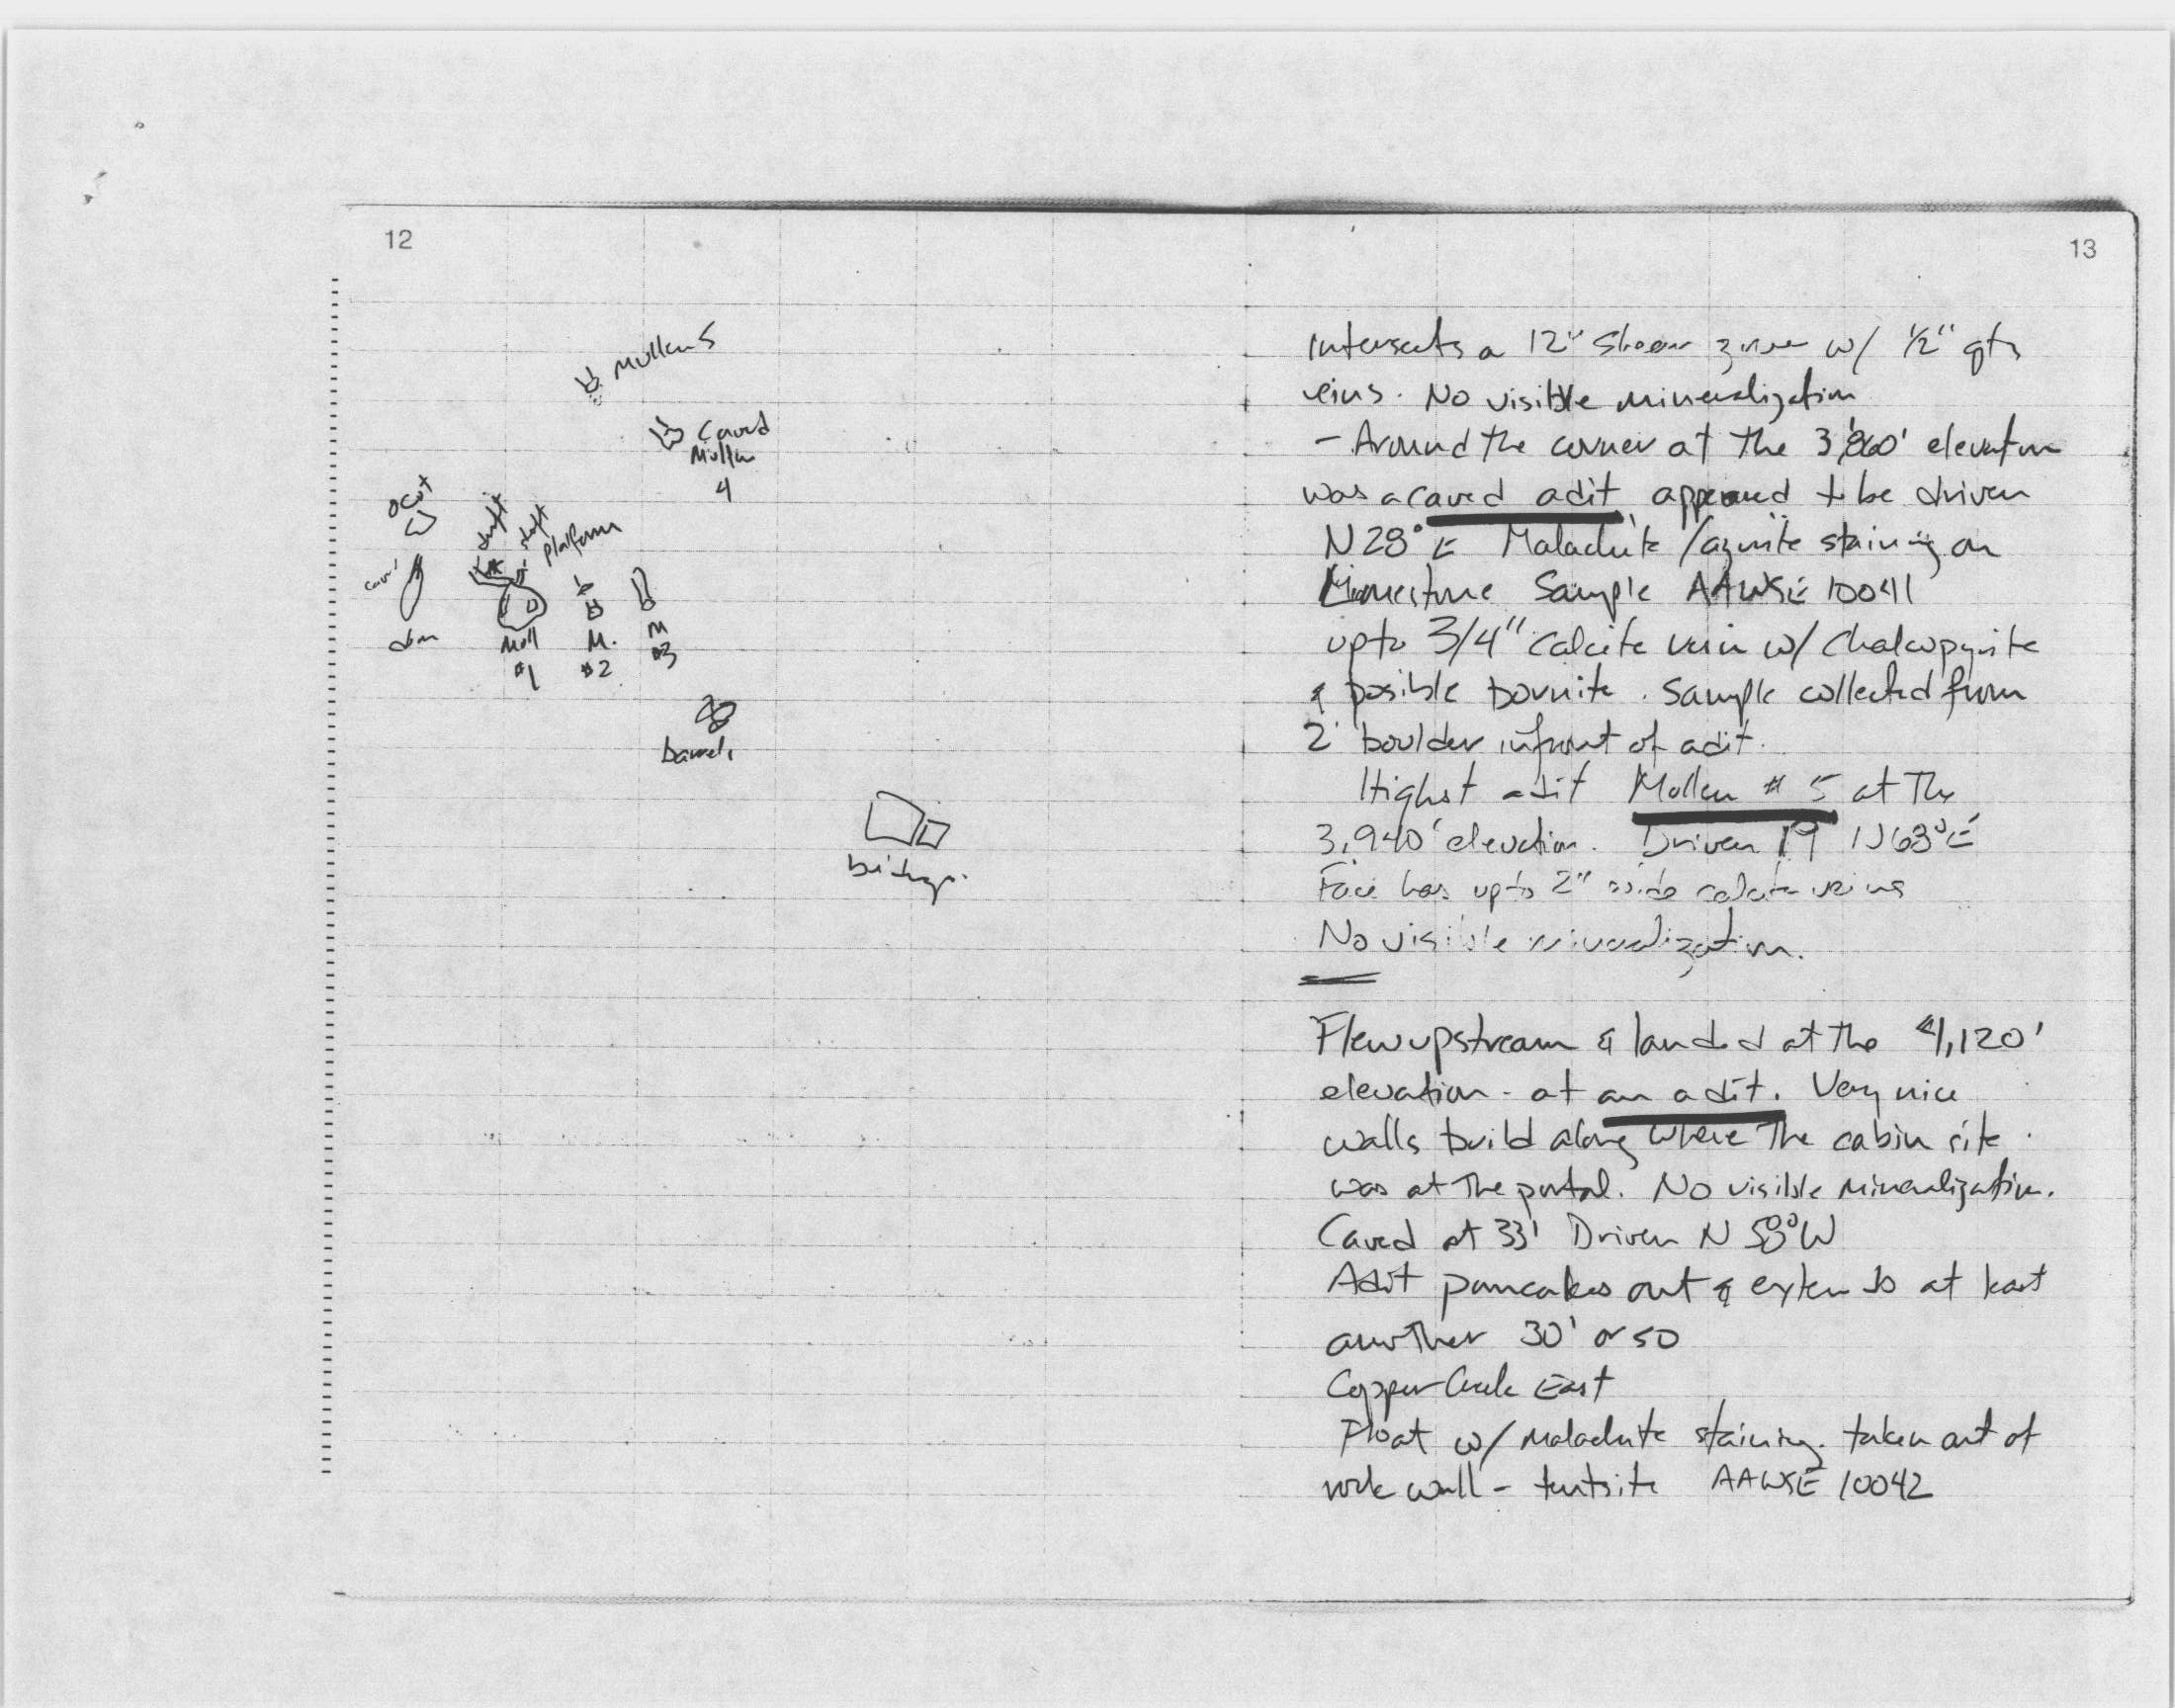 12
Mullen 5
Caved
Mullen
4
O cut
shaft
platform
Mull
#1
M.
#2
M
#3
barrels
13
Intersects a 12" Shear zone w/ 1/2" qtz
veins. No visible mineralization
- Around the corner at the 3,860' elevation
was a caved adit, appeared to be driven
N28°E Malachite/azurite staining on
Limestone Sample AAWSE 10041
up to 3/4" calcite vein w/ Chalcopyrite
& posible bornite. Sample collected from
2' boulder infront of adit.
Highest adit Mullen #5 at The
3,940' elevation. Driven 19' N63°E
Face has up to 2" wide calcite veins
No visible mineralization.
Flew upstream & landed at the 4,120'
elevation - at an adit. Very nice
walls build along where The cabin site
was at The portal. No visible mineralization.
Caved at 33' Driven N 58°W
Adit pancakes out & extends at least
another 30' or so
Copper Creek East
Float w/ malachite staining. taken out of
rock wall - tentsite AAWSE 10042